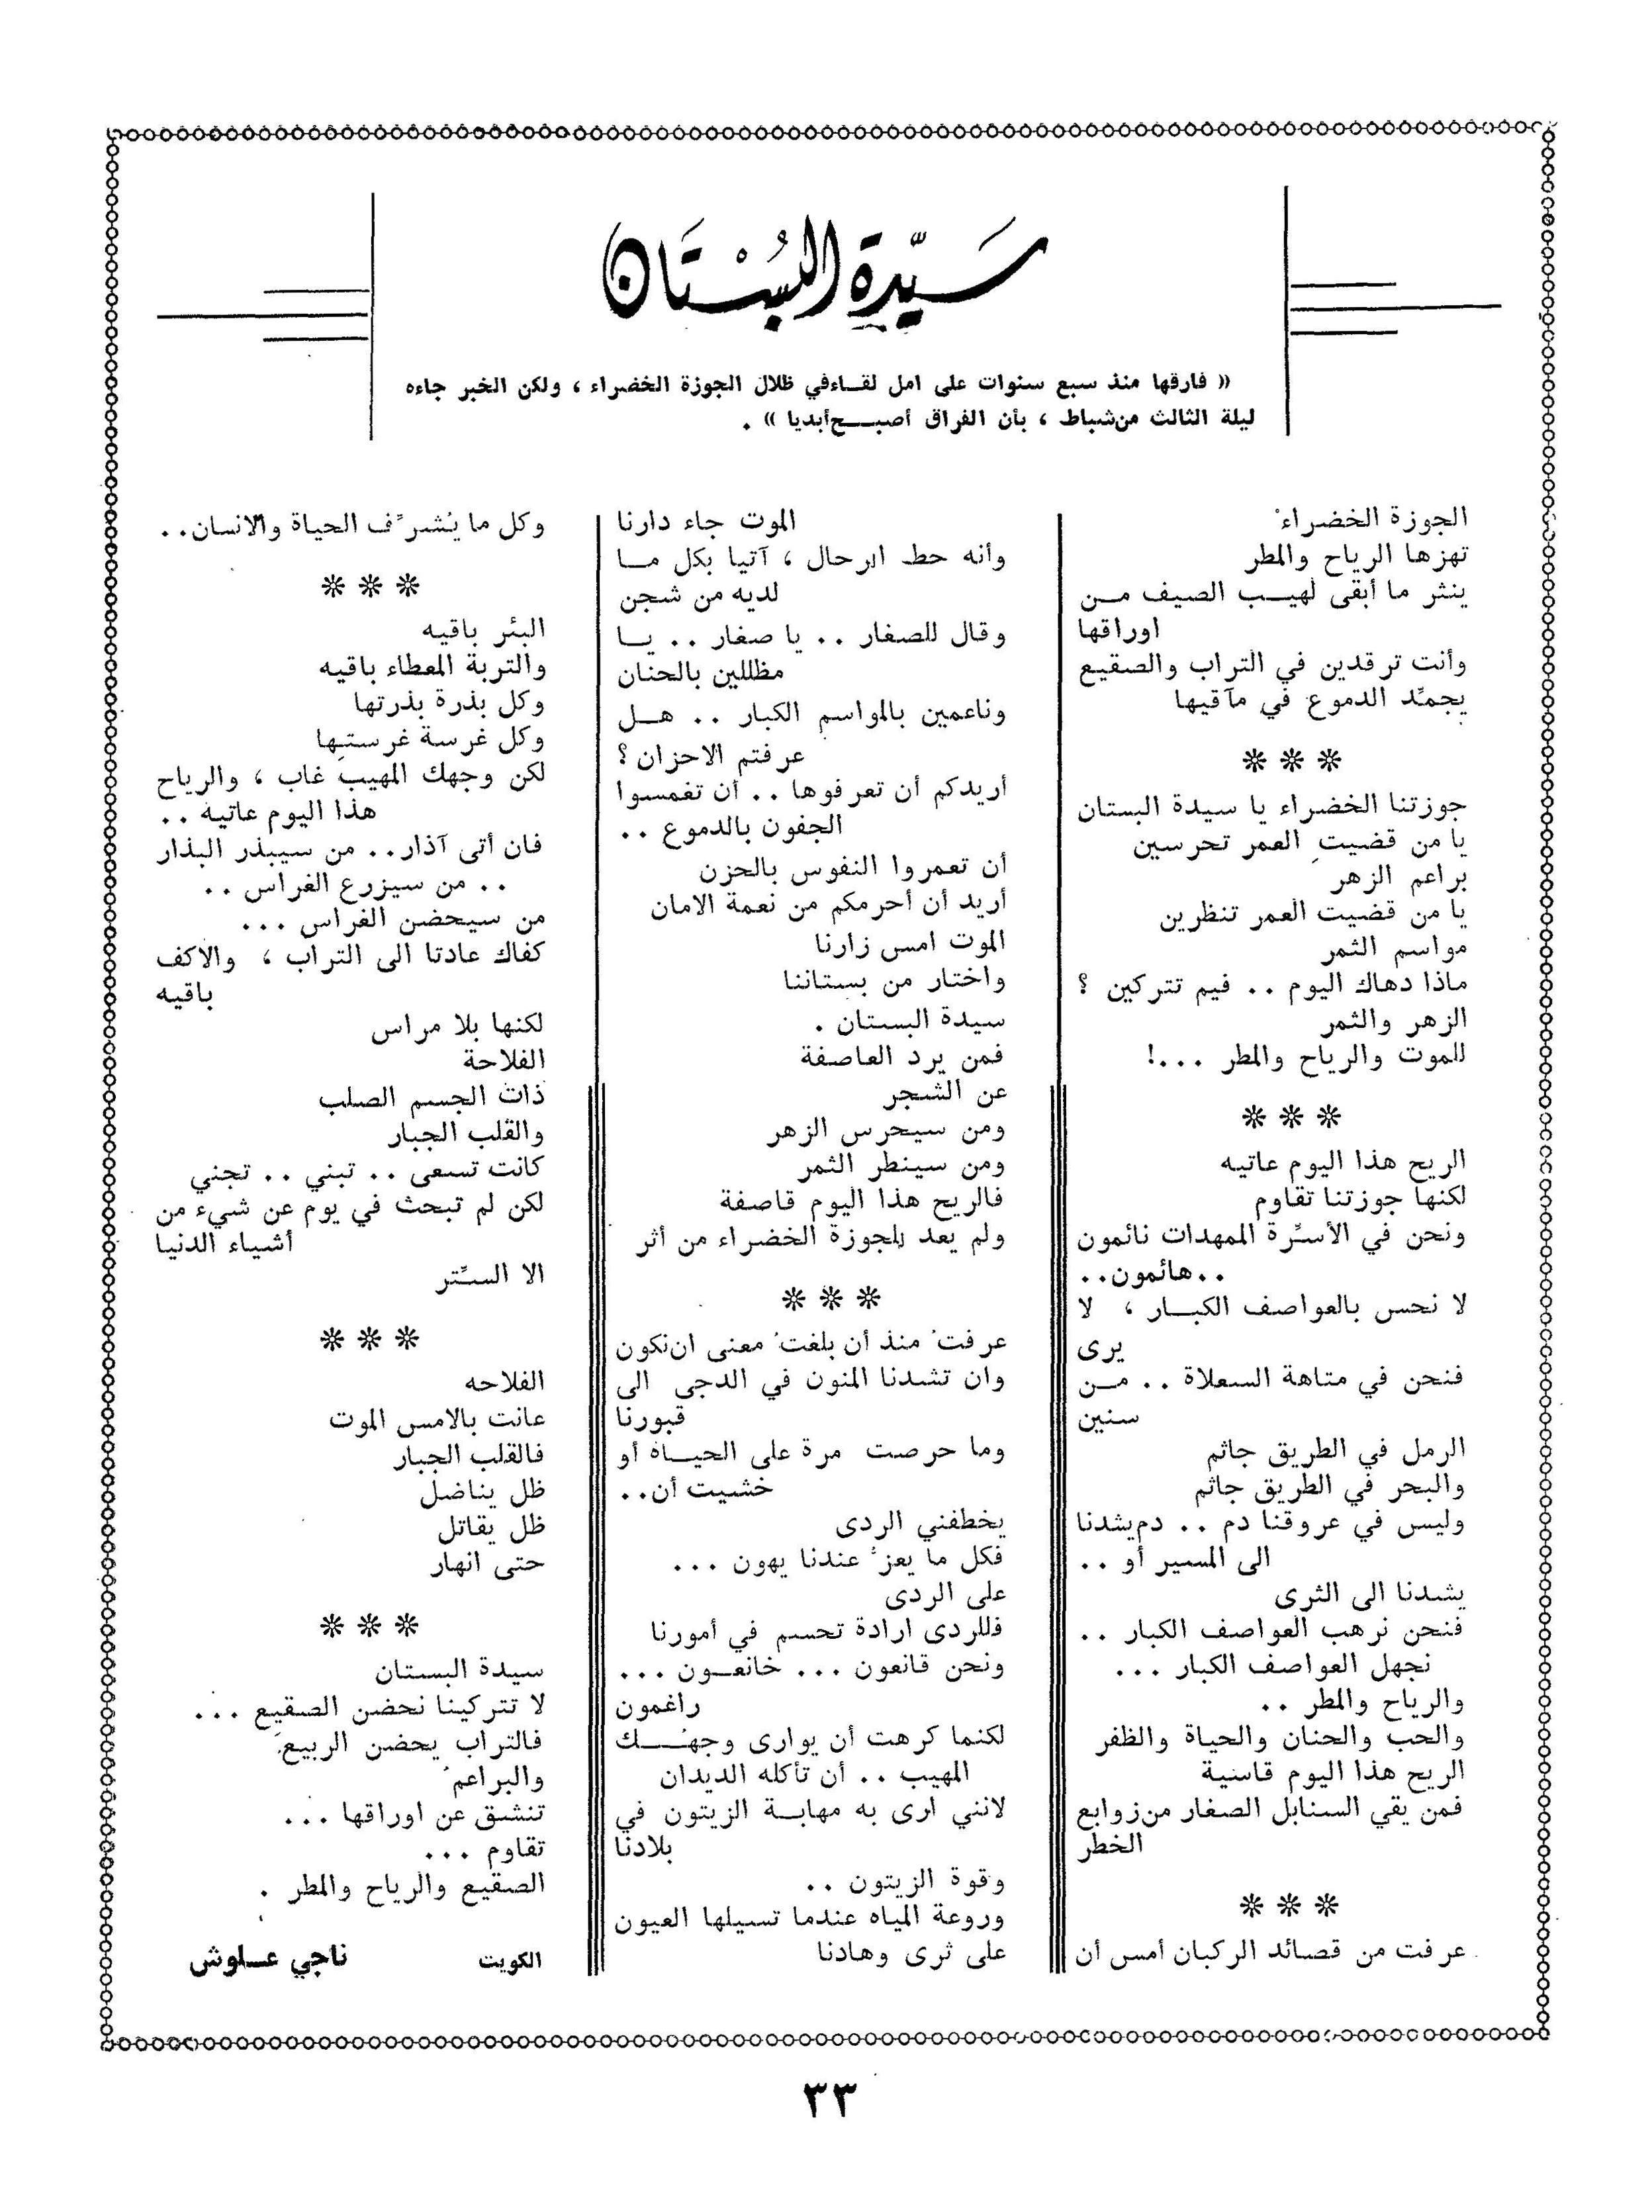 سَيّدة البُسْتَان
« فارقها منذ سبع سنوات على امل لقــاءفي ظلال الجوزة الخضراء ، ولكن الخبر جاءه
ليلة الثالث من شباط ، بأن الفراق أصبــح أبديا » .
الجوزة الخضراءُ
تهزها الرياح والمطر
ينثر ما أبقى لهيــب الصيف مــن
اوراقها
وأنت ترقدين في التراب والصقيع
يجمِّد الدموع في مآقيها
***
جوزتنا الخضراء يا سيدة البستان
يا من قضيتِ العمر تحرسين
براعم الزهر
يا من قضيت العمر تنظرين
مواسم الثمر
ماذا دهاك اليوم .. فيم تتركين ؟
الزهر والثمر
للموت والرياح والمطر ...!
***
الريح هذا اليوم عاتيه
لكنها جوزتنا تقاوم
ونحن في الأسرِّة الممهدات نائمون
..هائمون..
لا نحس بالعواصف الكبــار ، لا
يرى
فنحن في متاهة السعلاة .. مــن
سنين
الرمل في الطريق جاثم
والبحر في الطريق جاثم
وليس في عروقنا دم .. دم يشدنا
الى المسير أو ..
يشدنا الى الثرى
فنحن نرهب العواصف الكبار ..
نجهل العواصف الكبار ...
والرياح والمطر ..
والحب والحنان والحياة والظفر
الريح هذا اليوم قاسية
فمن يقي السنابل الصغار من زوابع
الخطر
***
عرفت من قصائد الركبان أمس أن
الموت جاء دارنا
وأنه حط الرحال ، آتيا بكل مــا
لديه من شجن
وقال للصغار .. يا صغار .. يــا
مظللين بالحنان
وناعمين بالمواسم الكبار .. هــل
عرفتم الاحزان ؟
أريدكم أن تعرفوها .. أن تغمسوا
الجفون بالدموع ..
أن تعمروا النفوس بالحزن
أريد أن أحرمكم من نعمة الامان
الموت امس زارنا
واختار من بستاننا
سيدة البستان .
فمن يرد العاصفة
عن الشجر
ومن سيحرس الزهر
ومن سينطر الثمر
فالريح هذا اليوم قاصفة
ولم يعد للجوزة الخضراء من أثر
***
عرفتُ منذ أن بلغتُ معنى ان نكون
وان تشدنا المنون في الدجى الى
قبورنا
وما حرصت مرة على الحيــاة أو
خشيت أن..
يخطفني الردى
فكل ما يعزُّ عندنا يهون ...
على الردى
فللردى ارادة تحسم في أمورنا
ونحن قانعون ... خانعــون ...
راغمون
لكنما كرهت أن يوارى وجهــك
المهيب .. أن تأكله الديدان
لانني ارى به مهابــة الزيتون في
بلادنا
وقوة الزيتون ..
وروعة المياه عندما تسيلها العيون
على ثرى وهادنا
وكل ما يُشرِّف الحياة والانسان..
***
البئر باقيه
والتربة المعطاء باقيه
وكل بذرة بذرتها
وكل غرسة غرستِها
لكن وجهك المهيب غاب ، والرياح
هذا اليوم عاتيه ..
فان أتى آذار.. من سيبذر البذار
.. من سيزرع الغراس ..
من سيحضن الغراس ...
كفاك عادتا الى التراب ، والاكف
باقيه
لكنها بلا مراس
الفلاحة
ذات الجسم الصلب
والقلب الجبار
كانت تسعى .. تبني .. تجني
لكن لم تبحث في يوم عن شيء من
أشياء الدنيا
الا السِّتر
***
الفلاحه
عانت بالامس الموت
فالقلب الجبار
ظل يناضل
ظل يقاتل
حتى انهار
***
سيدة البستان
لا تتركينا نحضن الصقيع ...
فالتراب يحضن الربيعَ
والبراعمُ
تنشق عن اوراقها ...
تقاوم ...
الصقيع والرياح والمطر .
الكويت ناجي عــلوش
٣٣